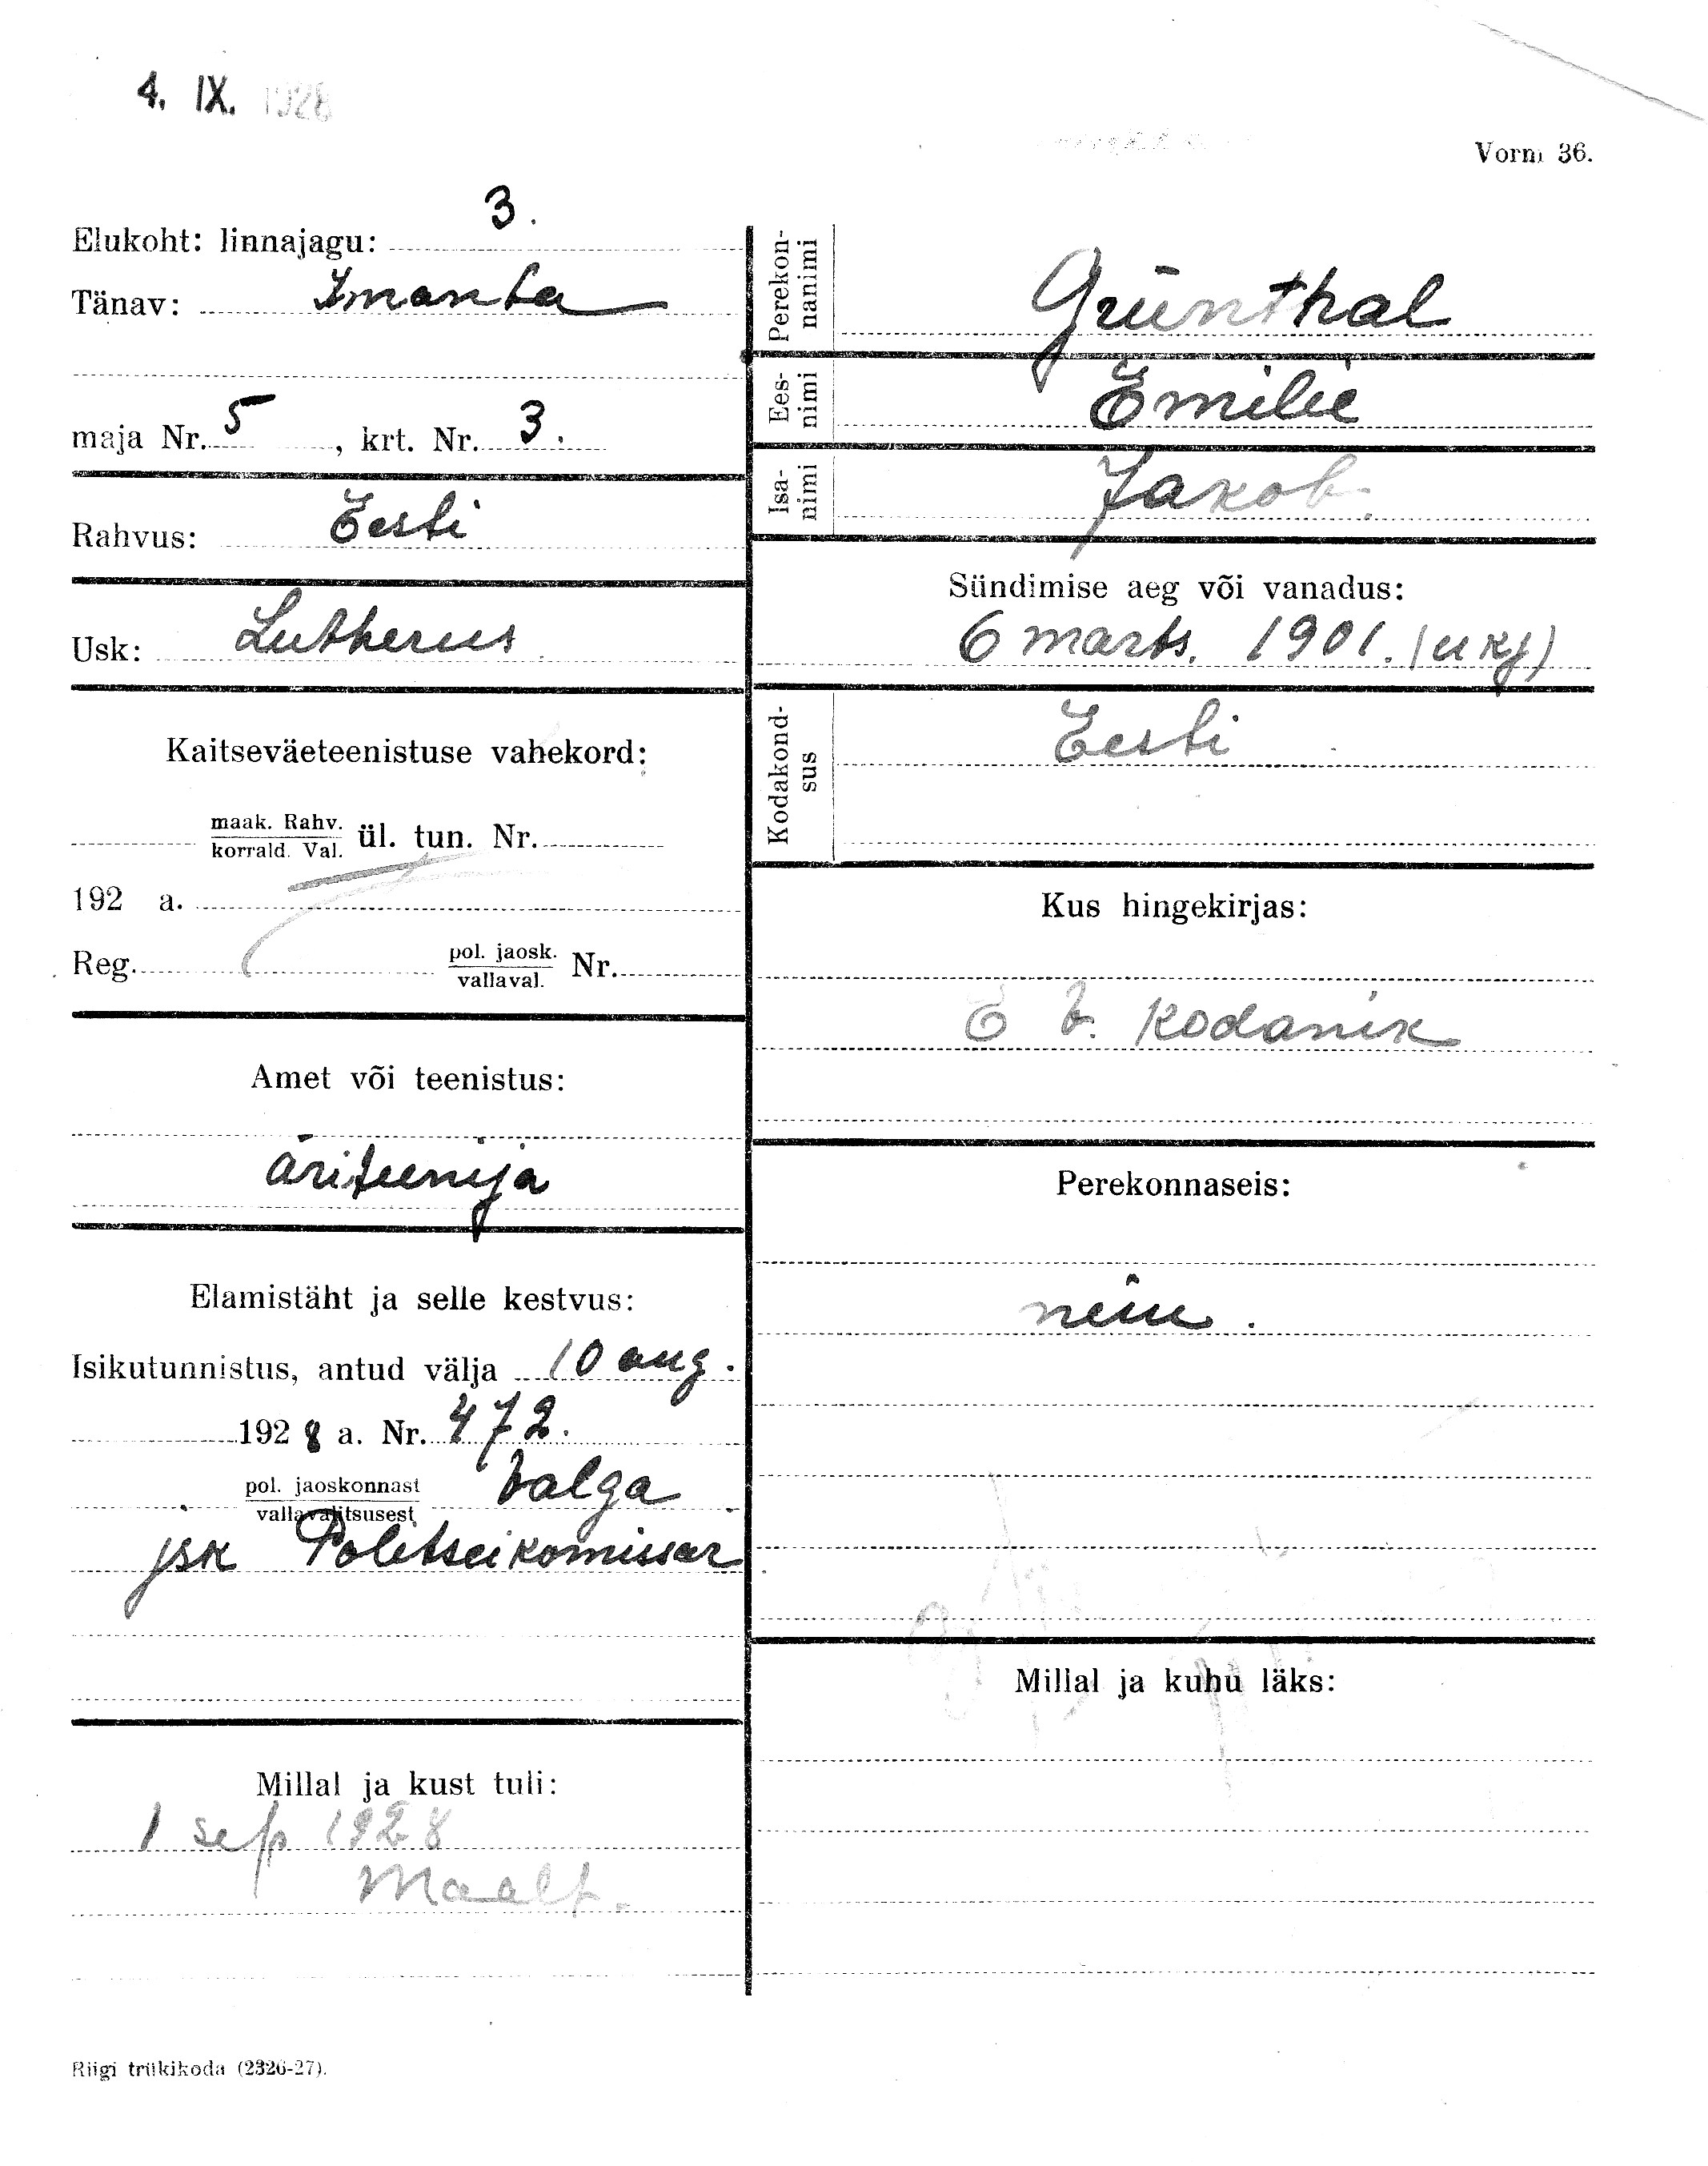 4. IX. 1928
Vorm 36.
Elukoht: linnajagu: 3.
Tänav: Imanta
maja Nr. 5, krt. Nr. 3.
Rahvus: Eesti
Usk: Lutherus
Kaitseväeteenistuse vahekord:
maak. Rahv.
korrald. Val. ül. tun. Nr.
192 a.
Reg. pol. jaosk.
vallaval. Nr.
Amet või teenistus:
äriteenija
Elamistäht ja selle kestvus:
Isikutunnistus, antud välja 10 aug.
1928 a. Nr. 472.
pol. jaoskonnast
vallavalitsusest Valga
jsk Politseikomissar
Millal ja kust tuli:
1 sep 1928
Maalt.
Riigi trükikoda (2326-27).
Perekon-
nanimi
Grünthal
Ees-
nimi
Emilie
Isa-
nimi
Jakob.
Sündimise aeg või vanadus:
6 marts. 1901. (ukj)
Kodakond-
sus
Eesti
Kus hingekirjas:
E V. kodanik
Perekonnaseis:
neiu.
Millal ja kuhu läks: